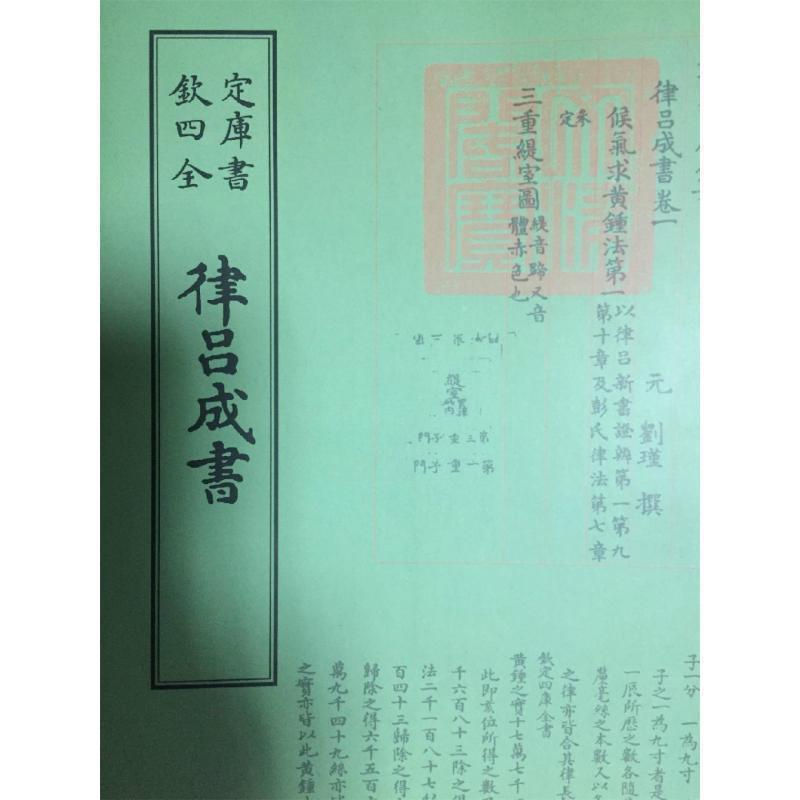 欽定四庫全書
律呂成書
律呂成書卷一
元 劉瑾 撰
候氣求黃鍾法第一
以律呂新書證辨第一第九
第十章及彭氏律法第七章
參定
三重緹室圖
緹音蹄又音
體赤色也
緹室
第三重子門
第一重子門
子一分 一為九寸
子之一為九寸者是
一辰所歷之數各隨
釐毫絲之本數又以
之律亦皆合其律長
欽定四庫全書
黃鍾之實十七萬七千
此即亥位所得之數
千六百八十三除之得
法二千一百八十七
百四十三歸除之得
歸除之得六千五百
萬九千四十九絲亦
之實亦皆以此黃鍾